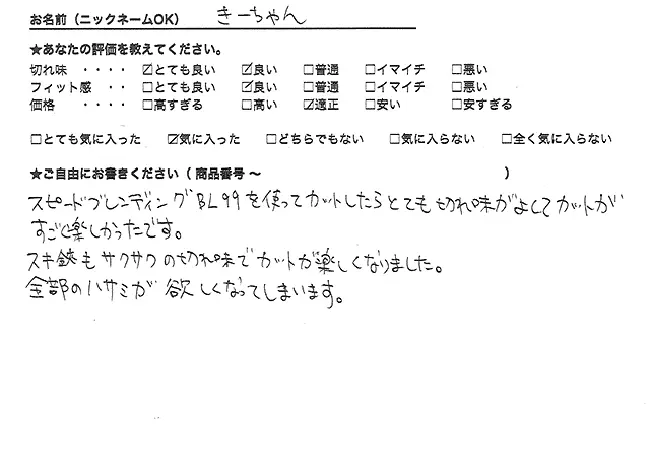 お名前（ニックネームOK） きーちゃん
★あなたの評価を教えてください。
切れ味 ・・・・ ☑とても良い ☑良い □普通 □イマイチ □悪い
フィット感 ・・ □とても良い ☑良い □普通 □イマイチ □悪い
価格 ・・・・ □高すぎる □高い ☑適正 □安い □安すぎる
□とても気に入った ☑気に入った □どちらでもない □気に入らない □全く気に入らない
★ご自由にお書きください（ 商品番号 〜 ）
スピードブレンディングBL99を使ってカットしたらとても切れ味がよくてカットが
すごく楽しかったです。
スキ鋏もサクサクの切れ味でカットが楽しくなりました。
全部のハサミが欲しくなってしまいます。